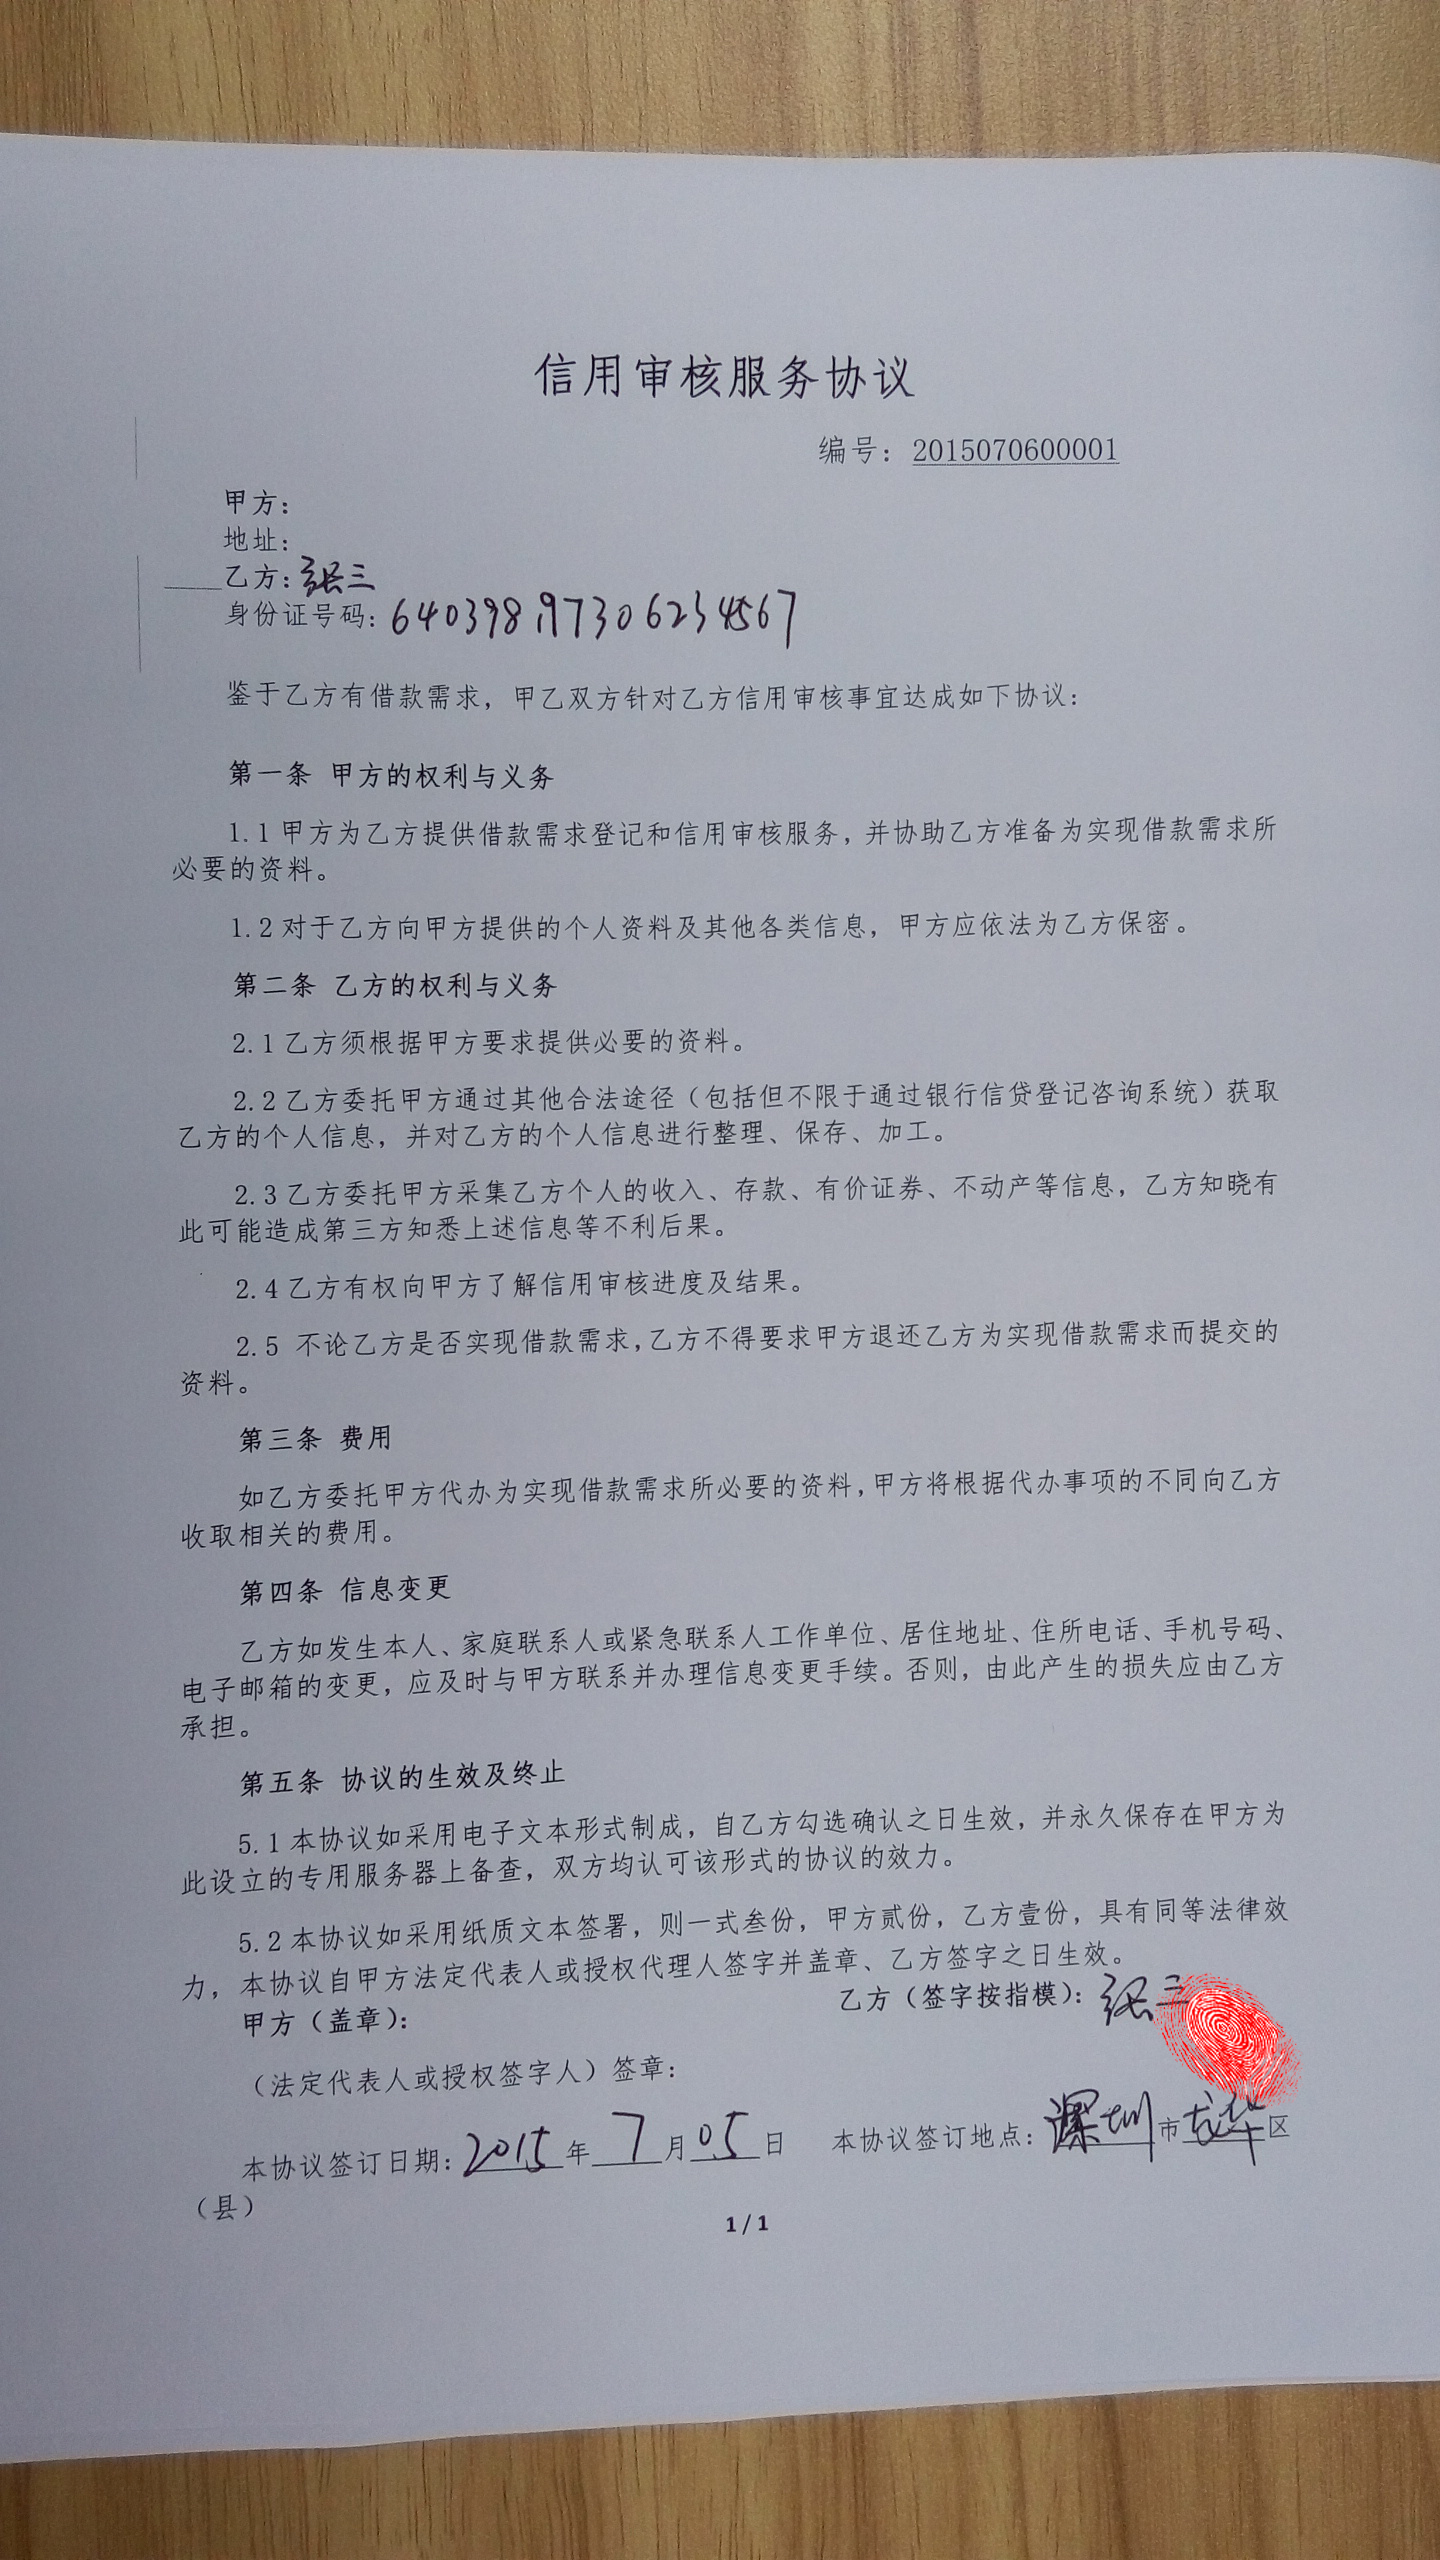 信用审核服务协议
编号：2015070600001
甲方：
地址：
乙方：张三
身份证号码：640398197306234567
鉴于乙方有借款需求，甲乙双方针对乙方信用审核事宜达成如下协议：
第一条 甲方的权利与义务
1.1甲方为乙方提供借款需求登记和信用审核服务，并协助乙方准备为实现借款需求所
必要的资料。
1.2对于乙方向甲方提供的个人资料及其他各类信息，甲方应依法为乙方保密。
第二条 乙方的权利与义务
2.1乙方须根据甲方要求提供必要的资料。
2.2乙方委托甲方通过其他合法途径（包括但不限于通过银行信贷登记咨询系统）获取
乙方的个人信息，并对乙方的个人信息进行整理、保存、加工。
2.3乙方委托甲方采集乙方个人的收入、存款、有价证券、不动产等信息，乙方知晓有
此可能造成第三方知悉上述信息等不利后果。
2.4乙方有权向甲方了解信用审核进度及结果。
2.5 不论乙方是否实现借款需求，乙方不得要求甲方退还乙方为实现借款需求而提交的
资料。
第三条 费用
如乙方委托甲方代办为实现借款需求所必要的资料，甲方将根据代办事项的不同向乙方
收取相关的费用。
第四条 信息变更
乙方如发生本人、家庭联系人或紧急联系人工作单位、居住地址、住所电话、手机号码、
电子邮箱的变更，应及时与甲方联系并办理信息变更手续。否则，由此产生的损失应由乙方
承担。
第五条 协议的生效及终止
5.1本协议如采用电子文本形式制成，自乙方勾选确认之日生效，并永久保存在甲方为
此设立的专用服务器上备查，双方均认可该形式的协议的效力。
5.2本协议如采用纸质文本签署，则一式叁份，甲方贰份，乙方壹份，具有同等法律效
力，本协议自甲方法定代表人或授权代理人签字并盖章、乙方签字之日生效。
甲方（盖章）： 乙方（签字按指模）：张三
（法定代表人或授权签字人）签章：
本协议签订日期：2015年7月05日 本协议签订地点：深圳市龙华区
（县）
1 / 1